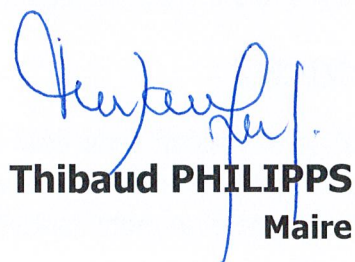 Thibaud PHILIPPS
Maire